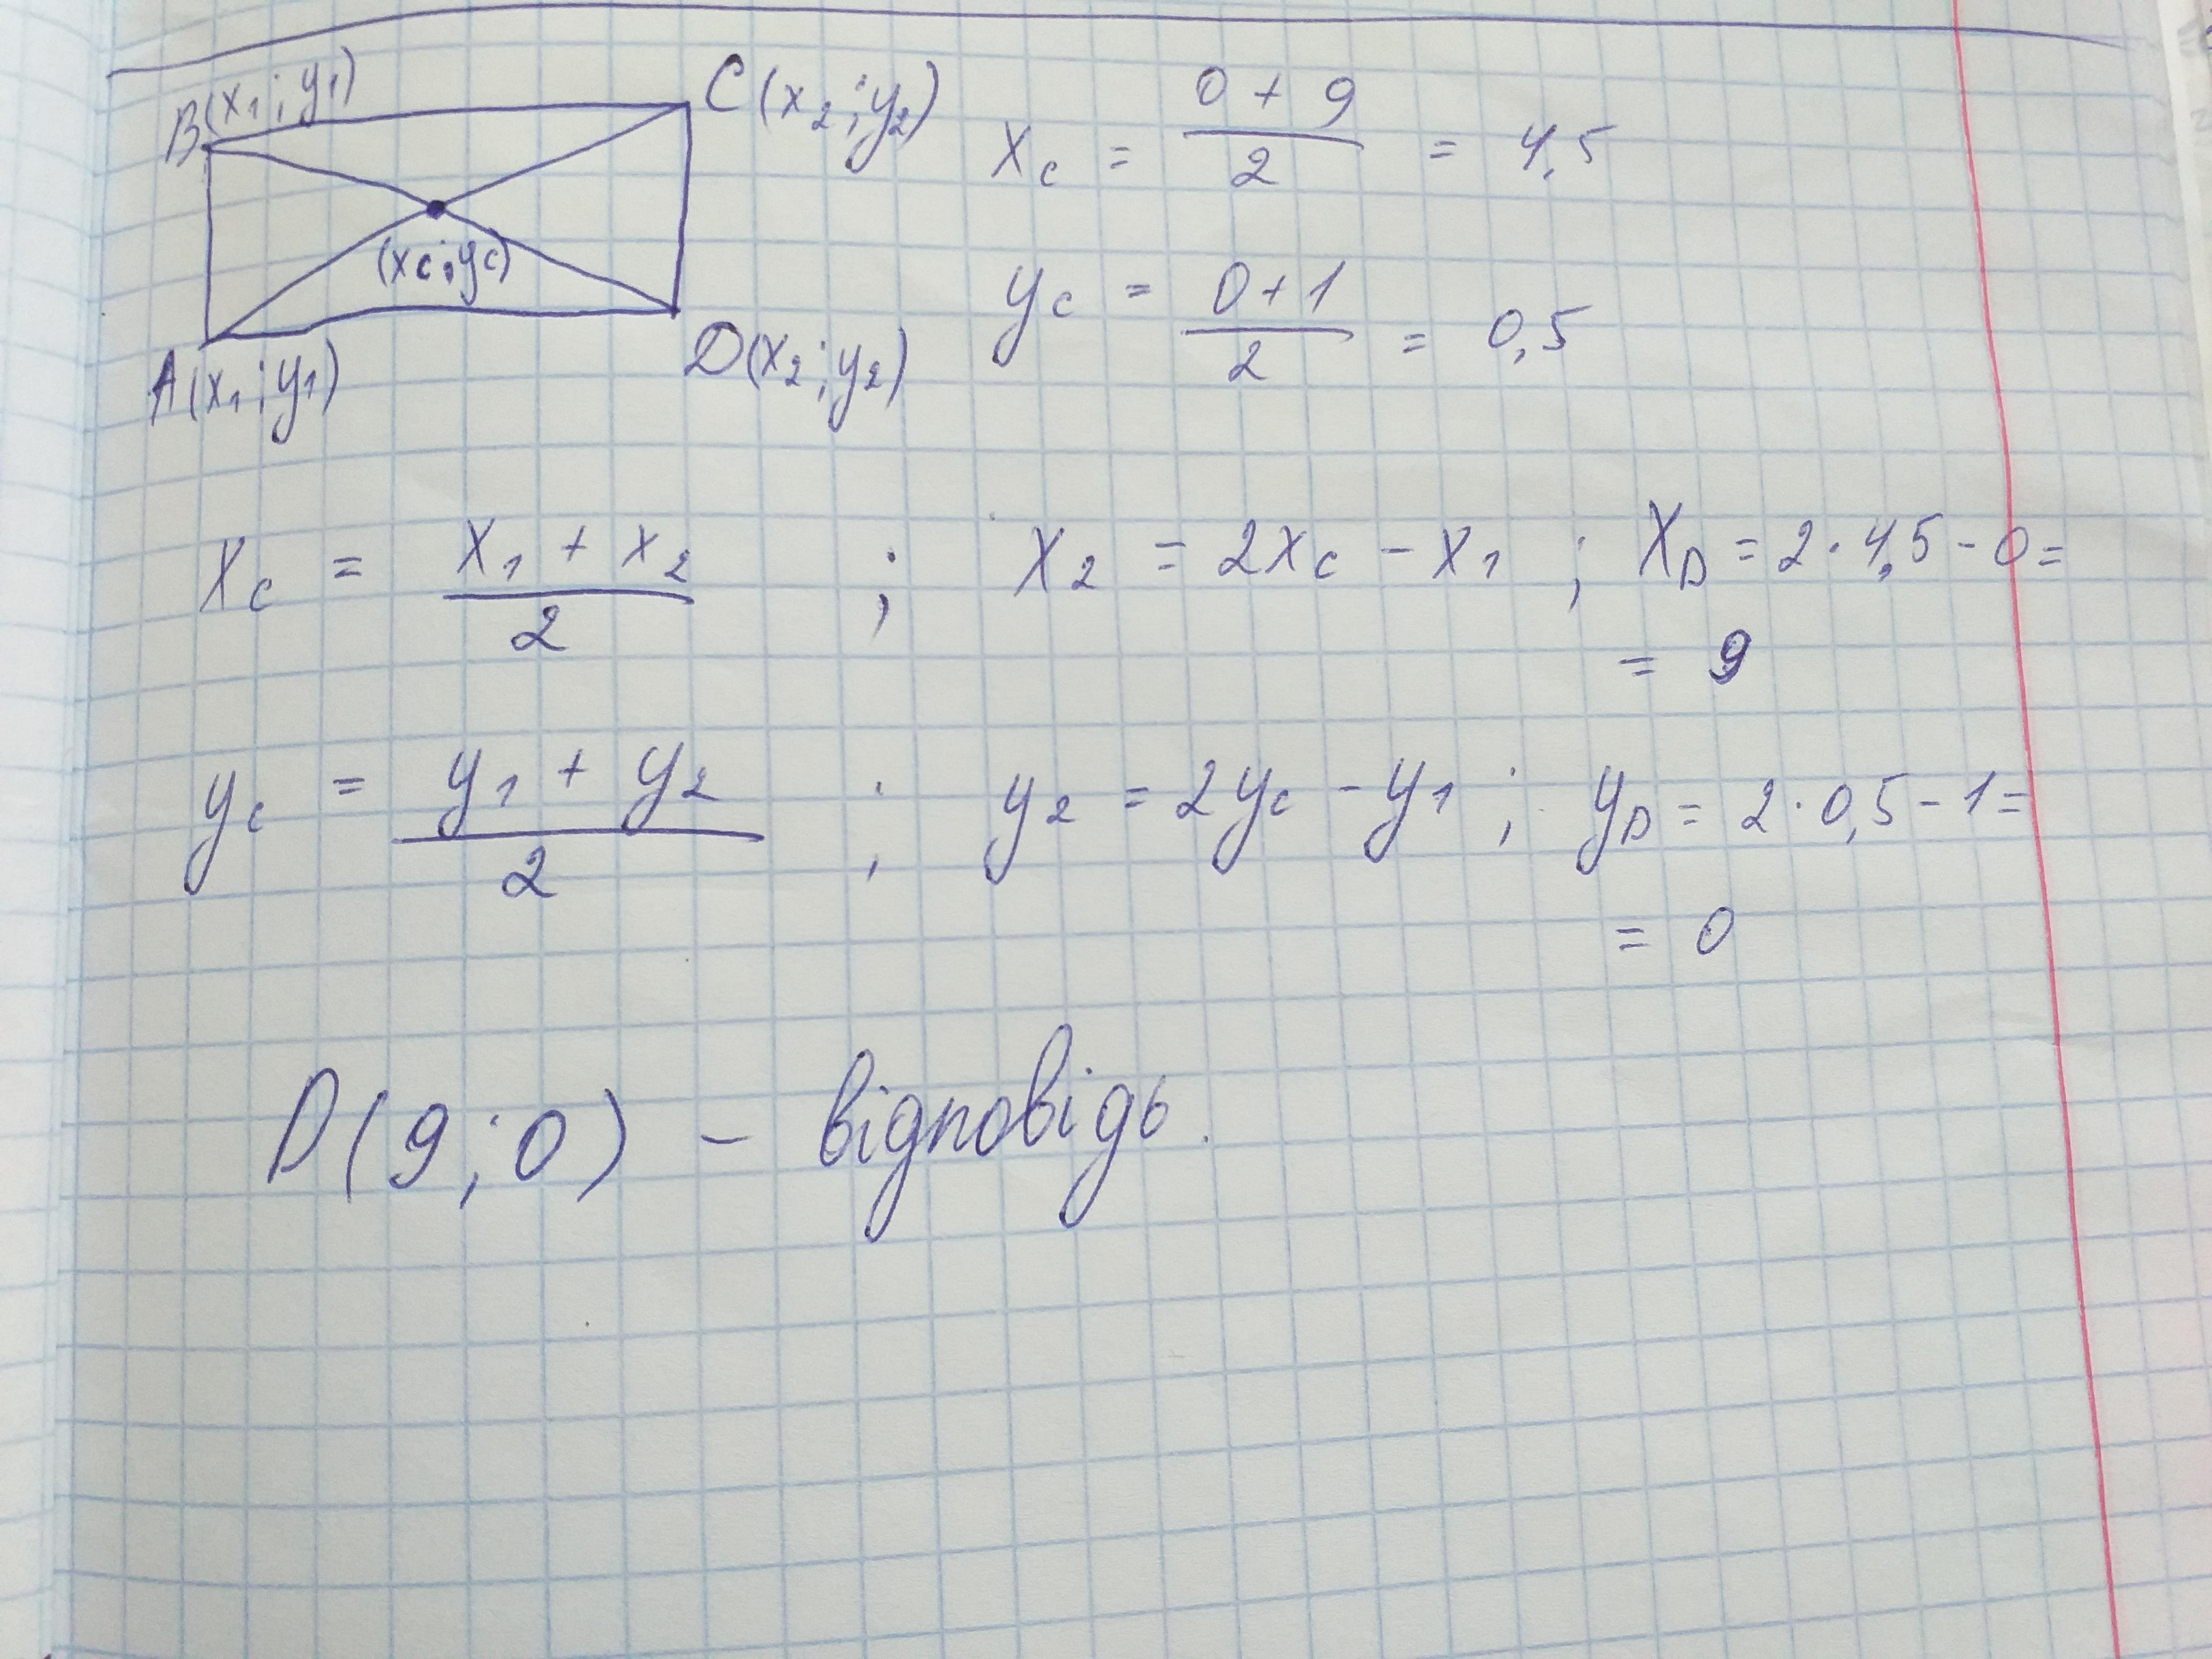 B(x₁;y₁)
C(x₂;y₂)
(xc;yc)
A(x₁;y₁)
D(x₂;y₂)
xc = (0 + 9)/2 = 4,5
yc = (0+1)/2 = 0,5
xc = (x₁ + x₂)/2 ; x₂ = 2xc - x₁ ; xD = 2·4,5 - 0 =
= 9
yc = (y₁ + y₂)/2 ; y₂ = 2yc - y₁ ; yD = 2·0,5 - 1 =
= 0
D(9;0) - відповідь.